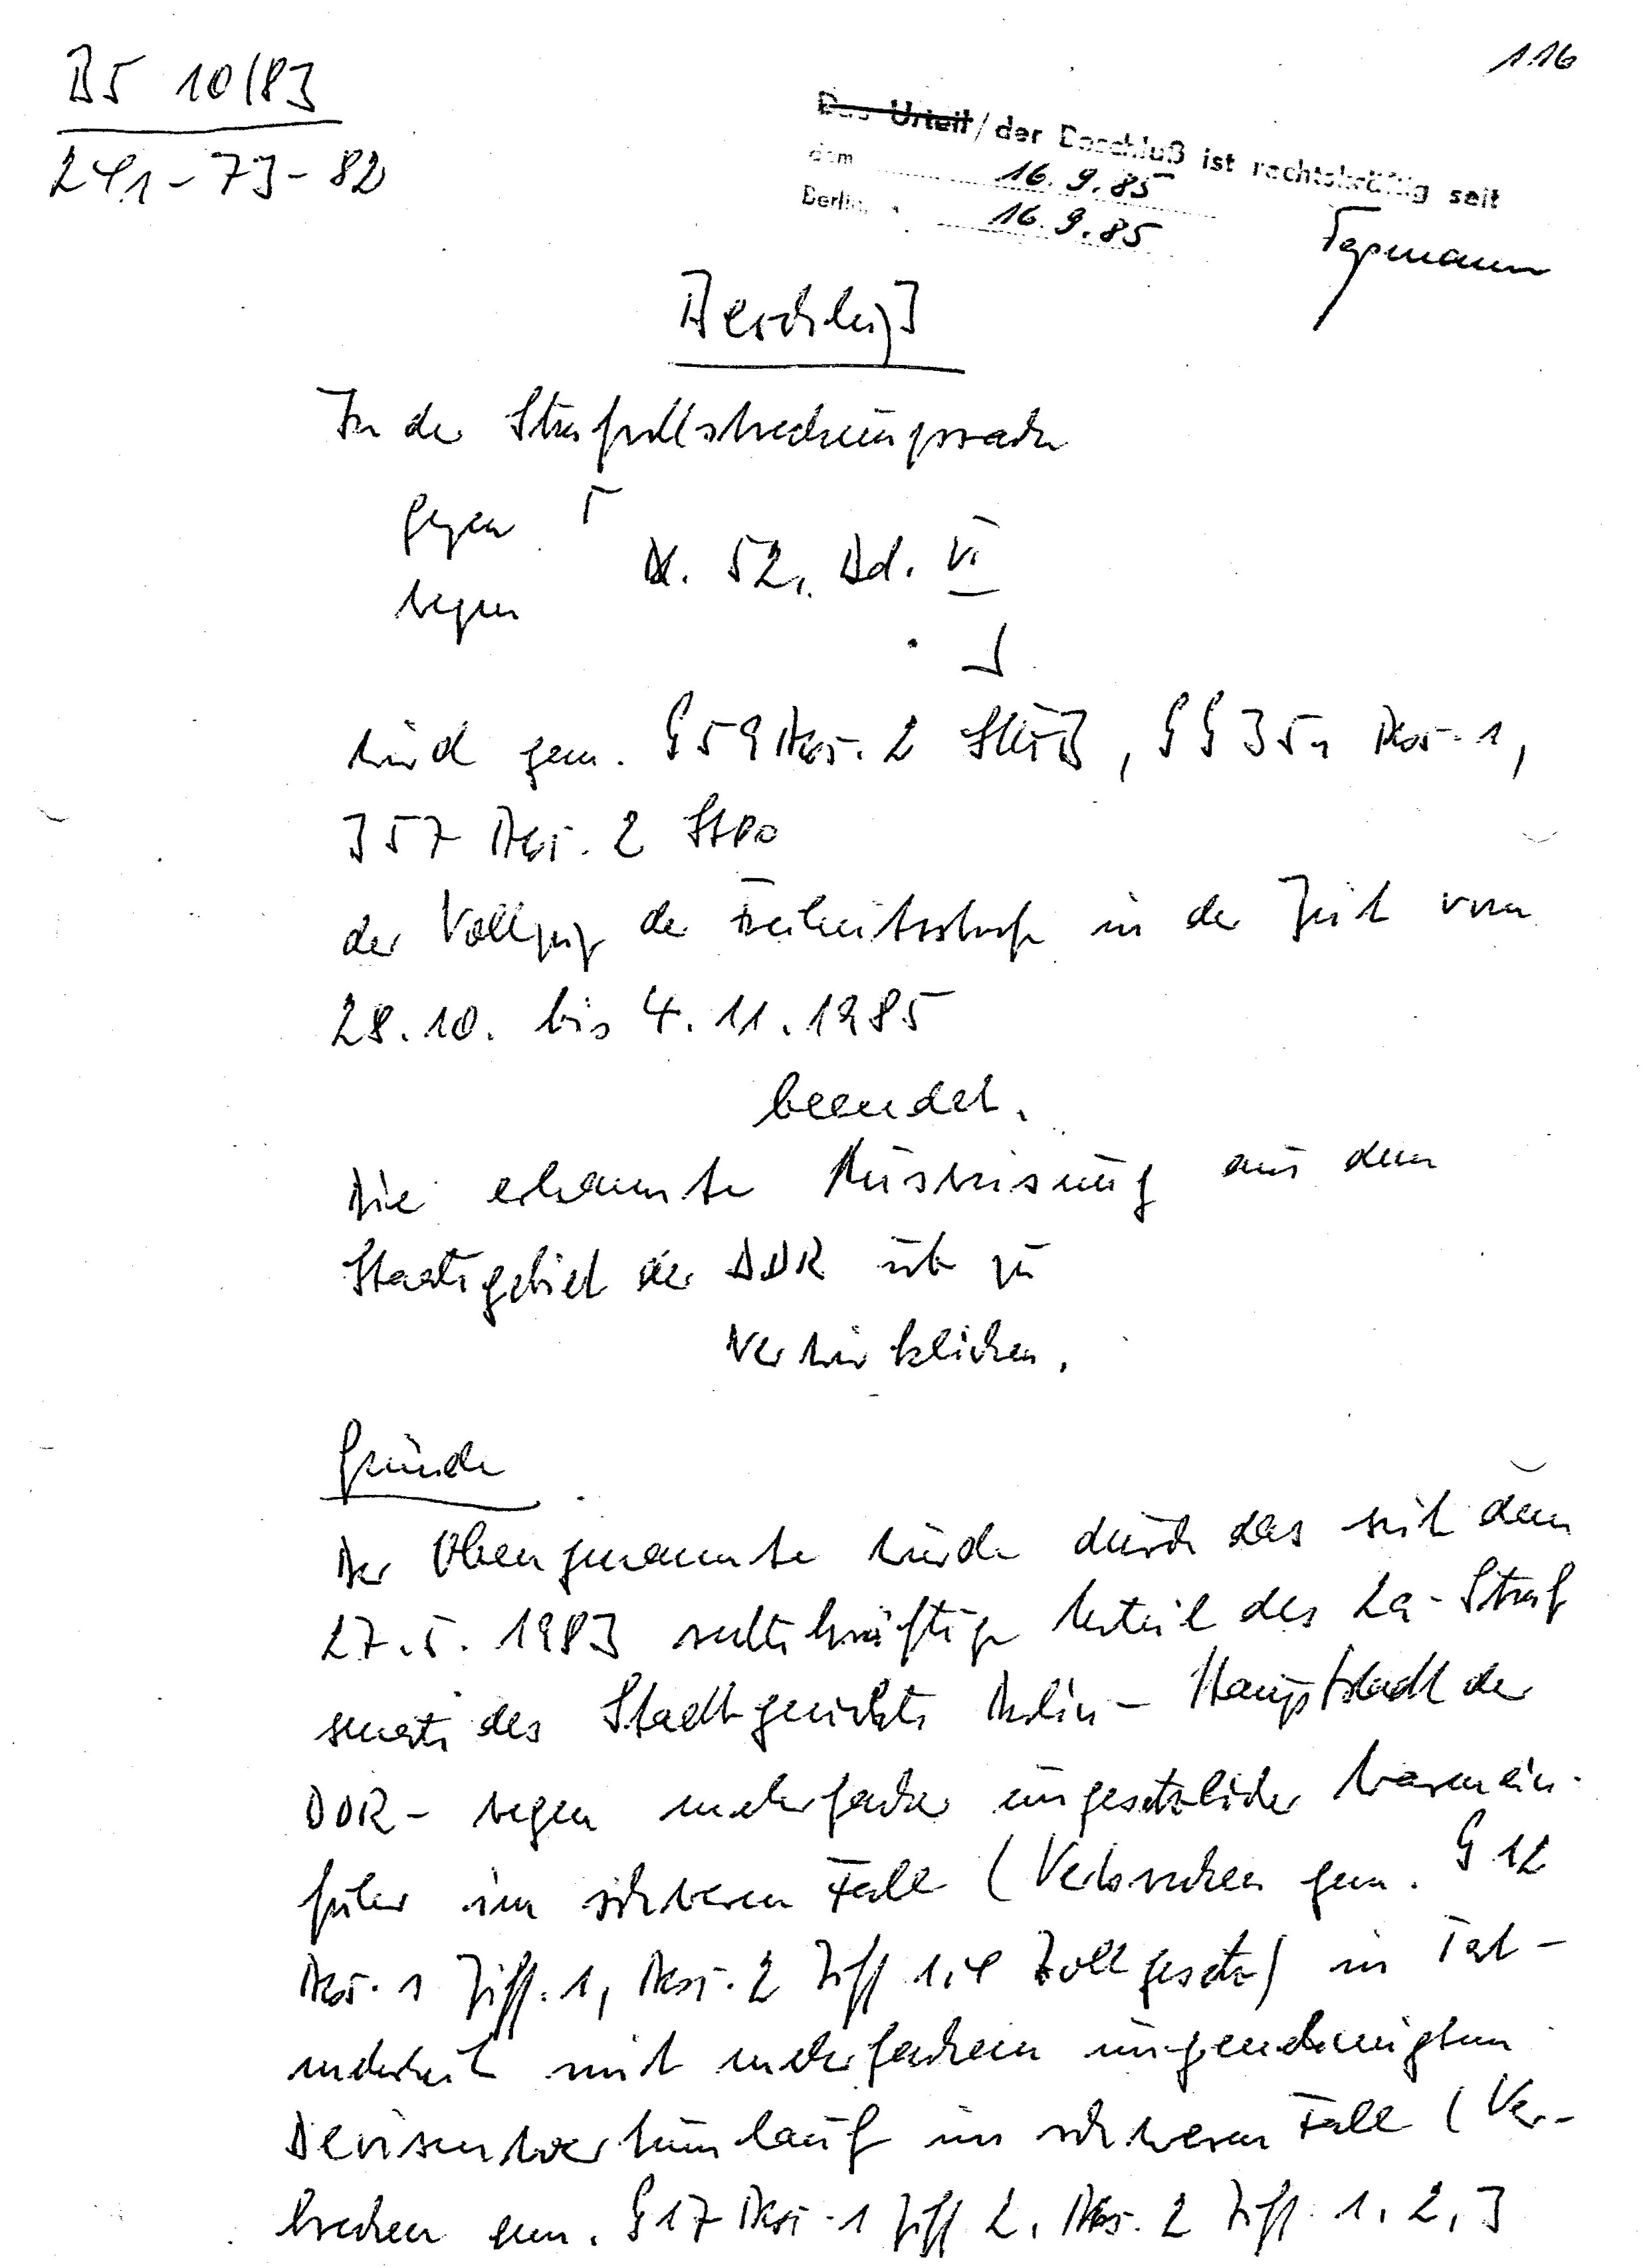 116
BS 10/83
241-73-82
Das Urteil/der Beschluß ist rechtskräftig seit
dem 16.9.85
Berlin, 16.9.85
Beschluß
In der Strafvollstreckungssache
gegen
Bl. 52, Bd. VI
wegen
wird gem. § 59 Abs. 2 StGB, §§ 351 Abs. 1,
357 Abs. 2 StPO
der Vollzug der Freiheitsstrafe in der Zeit vom
28.10. bis 4.11.1985
beendet.
Die erkannte Ausweisung aus dem
Staatsgebiet der DDR ist zu
verwirklichen.
Gründe
Der Obengenannte wurde durch das seit dem
27.5.1983 rechtskräftige Urteil des 2a-Straf
senats des Stadtgerichts Berlin - Hauptstadt der
DDR - wegen mehrfacher ungesetzlicher Warenein-
fuhr im schweren Falle (Verbrechen gem. § 12
Abs. 1 Ziff. 1, Abs. 2 Ziff 1,4 Zollgesetz) in Tat-
mehrheit mit mehrfachem ungenehmigtem
Devisenwertumlauf im schweren Falle (Ver-
brechen gem. § 17 Abs. 1 Ziff 2, Abs. 2 Ziff. 1, 2, 3